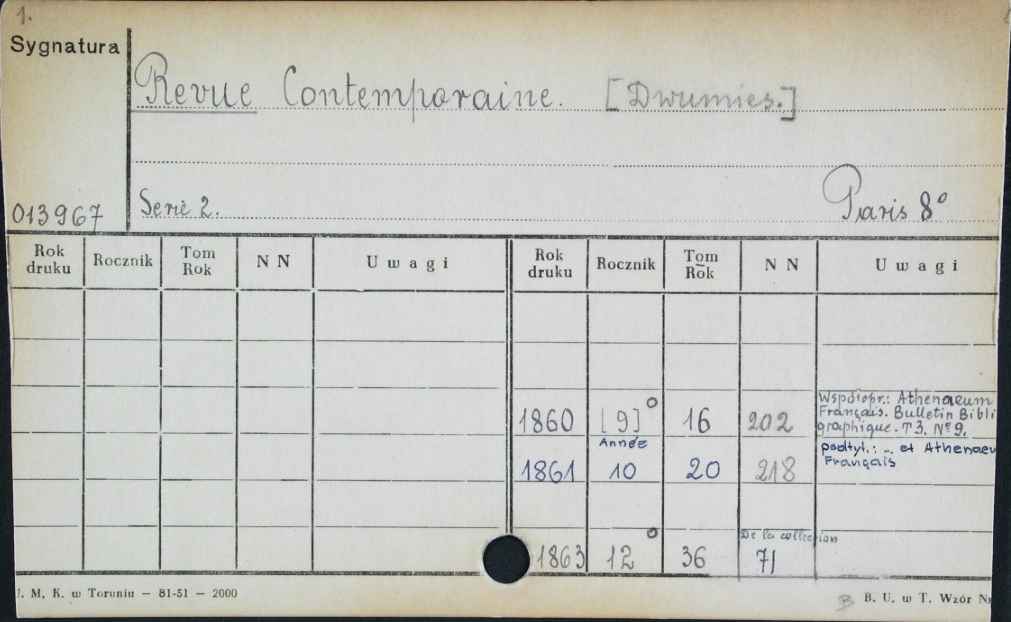 1.
Sygnatura
Revue Contemporaine. [Dwumies.]
013967 Serie 2. Paris 8°
Rok druku Rocznik Tom Rok N N Uwagi Rok druku Rocznik Tom Rok N N Uwagi
Współopr.: Athenaeum
1860 [9]° 16 202 Français. Bulletin Bibli
graphique. T3. Nº9.
Année podtyt.: _ et Athenaeu
1861 10 20 218 Français
De la collection
1863 12° 36 71
J. M. K. w Toruniu — 81-51 — 2000 B. U. w T. Wzór Nr